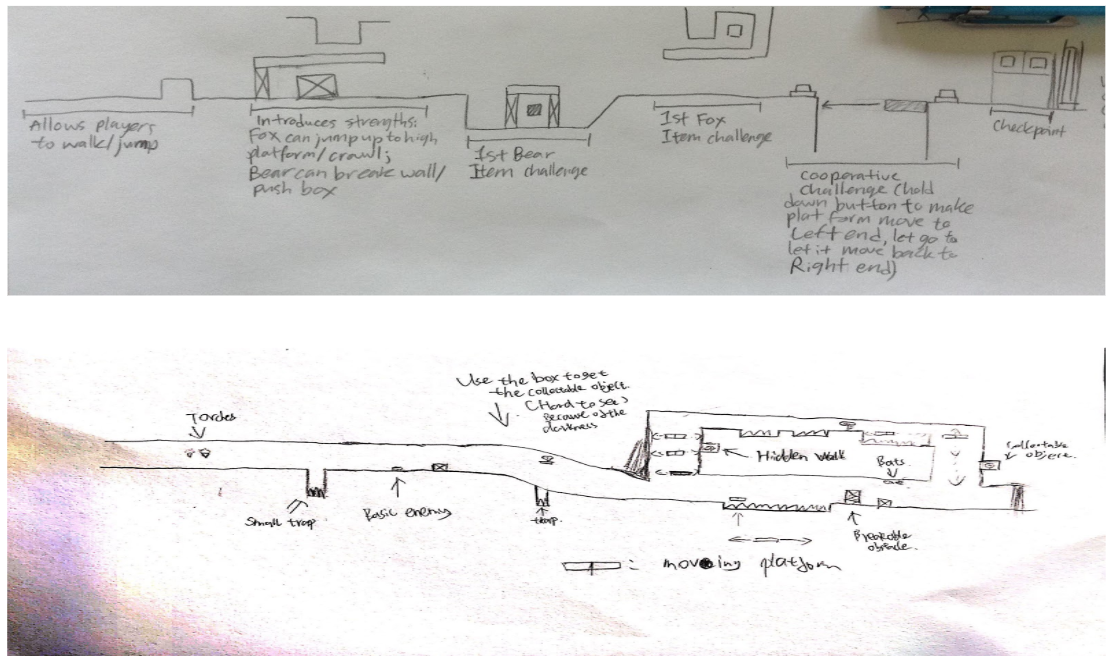 Allows players
to walk/jump
Introduces strengths:
Fox can jump up to high
platform/crawl;
Bear can break wall/
push box
1st Bear
Item challenge
1st Fox
Item challenge
cooperative
challenge (hold
down button to make
platform move to
Left end, let go to
let it move back to
Right end)
Checkpoint
Use the box to get
the collectable object.
(Hard to see)
Because of the
darkness
Torches
Small trap
Basic enemy
trap.
Hidden walk
Bats.
Collectable
object.
Breakable
obstacle.
: moveing platform